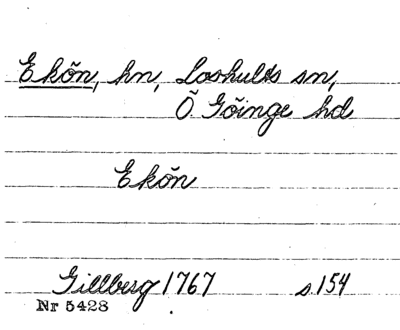 Ekön, hn, Loshults sn,
Ö. Göinge hd
Ekön
Gillberg 1767 s. 154
Nr 5428